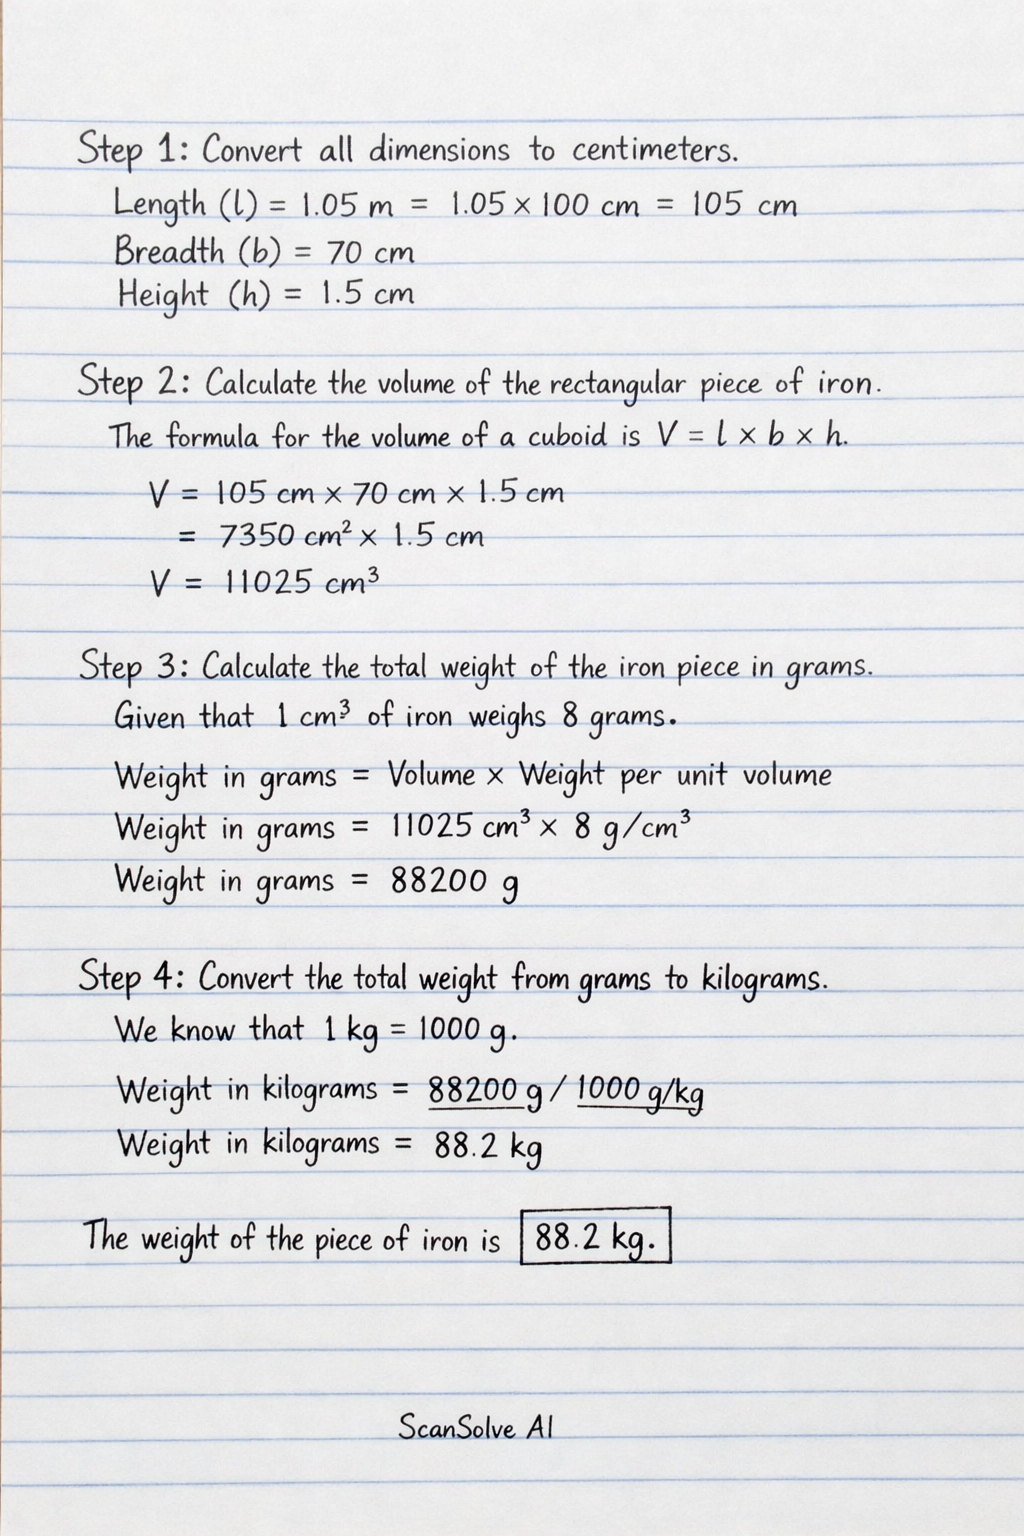 Step 1: Convert all dimensions to centimeters.
Length (l) = 1.05 m = 1.05 × 100 cm = 105 cm
Breadth (b) = 70 cm
Height (h) = 1.5 cm
Step 2: Calculate the volume of the rectangular piece of iron.
The formula for the volume of a cuboid is V = l × b × h.
V = 105 cm × 70 cm × 1.5 cm
= 7350 cm² × 1.5 cm
V = 11025 cm³
Step 3: Calculate the total weight of the iron piece in grams.
Given that 1 cm³ of iron weighs 8 grams.
Weight in grams = Volume × Weight per unit volume
Weight in grams = 11025 cm³ × 8 g/cm³
Weight in grams = 88200 g
Step 4: Convert the total weight from grams to kilograms.
We know that 1 kg = 1000 g.
Weight in kilograms = 88200 g / 1000 g/kg
Weight in kilograms = 88.2 kg
The weight of the piece of iron is 88.2 kg.
ScanSolve AI